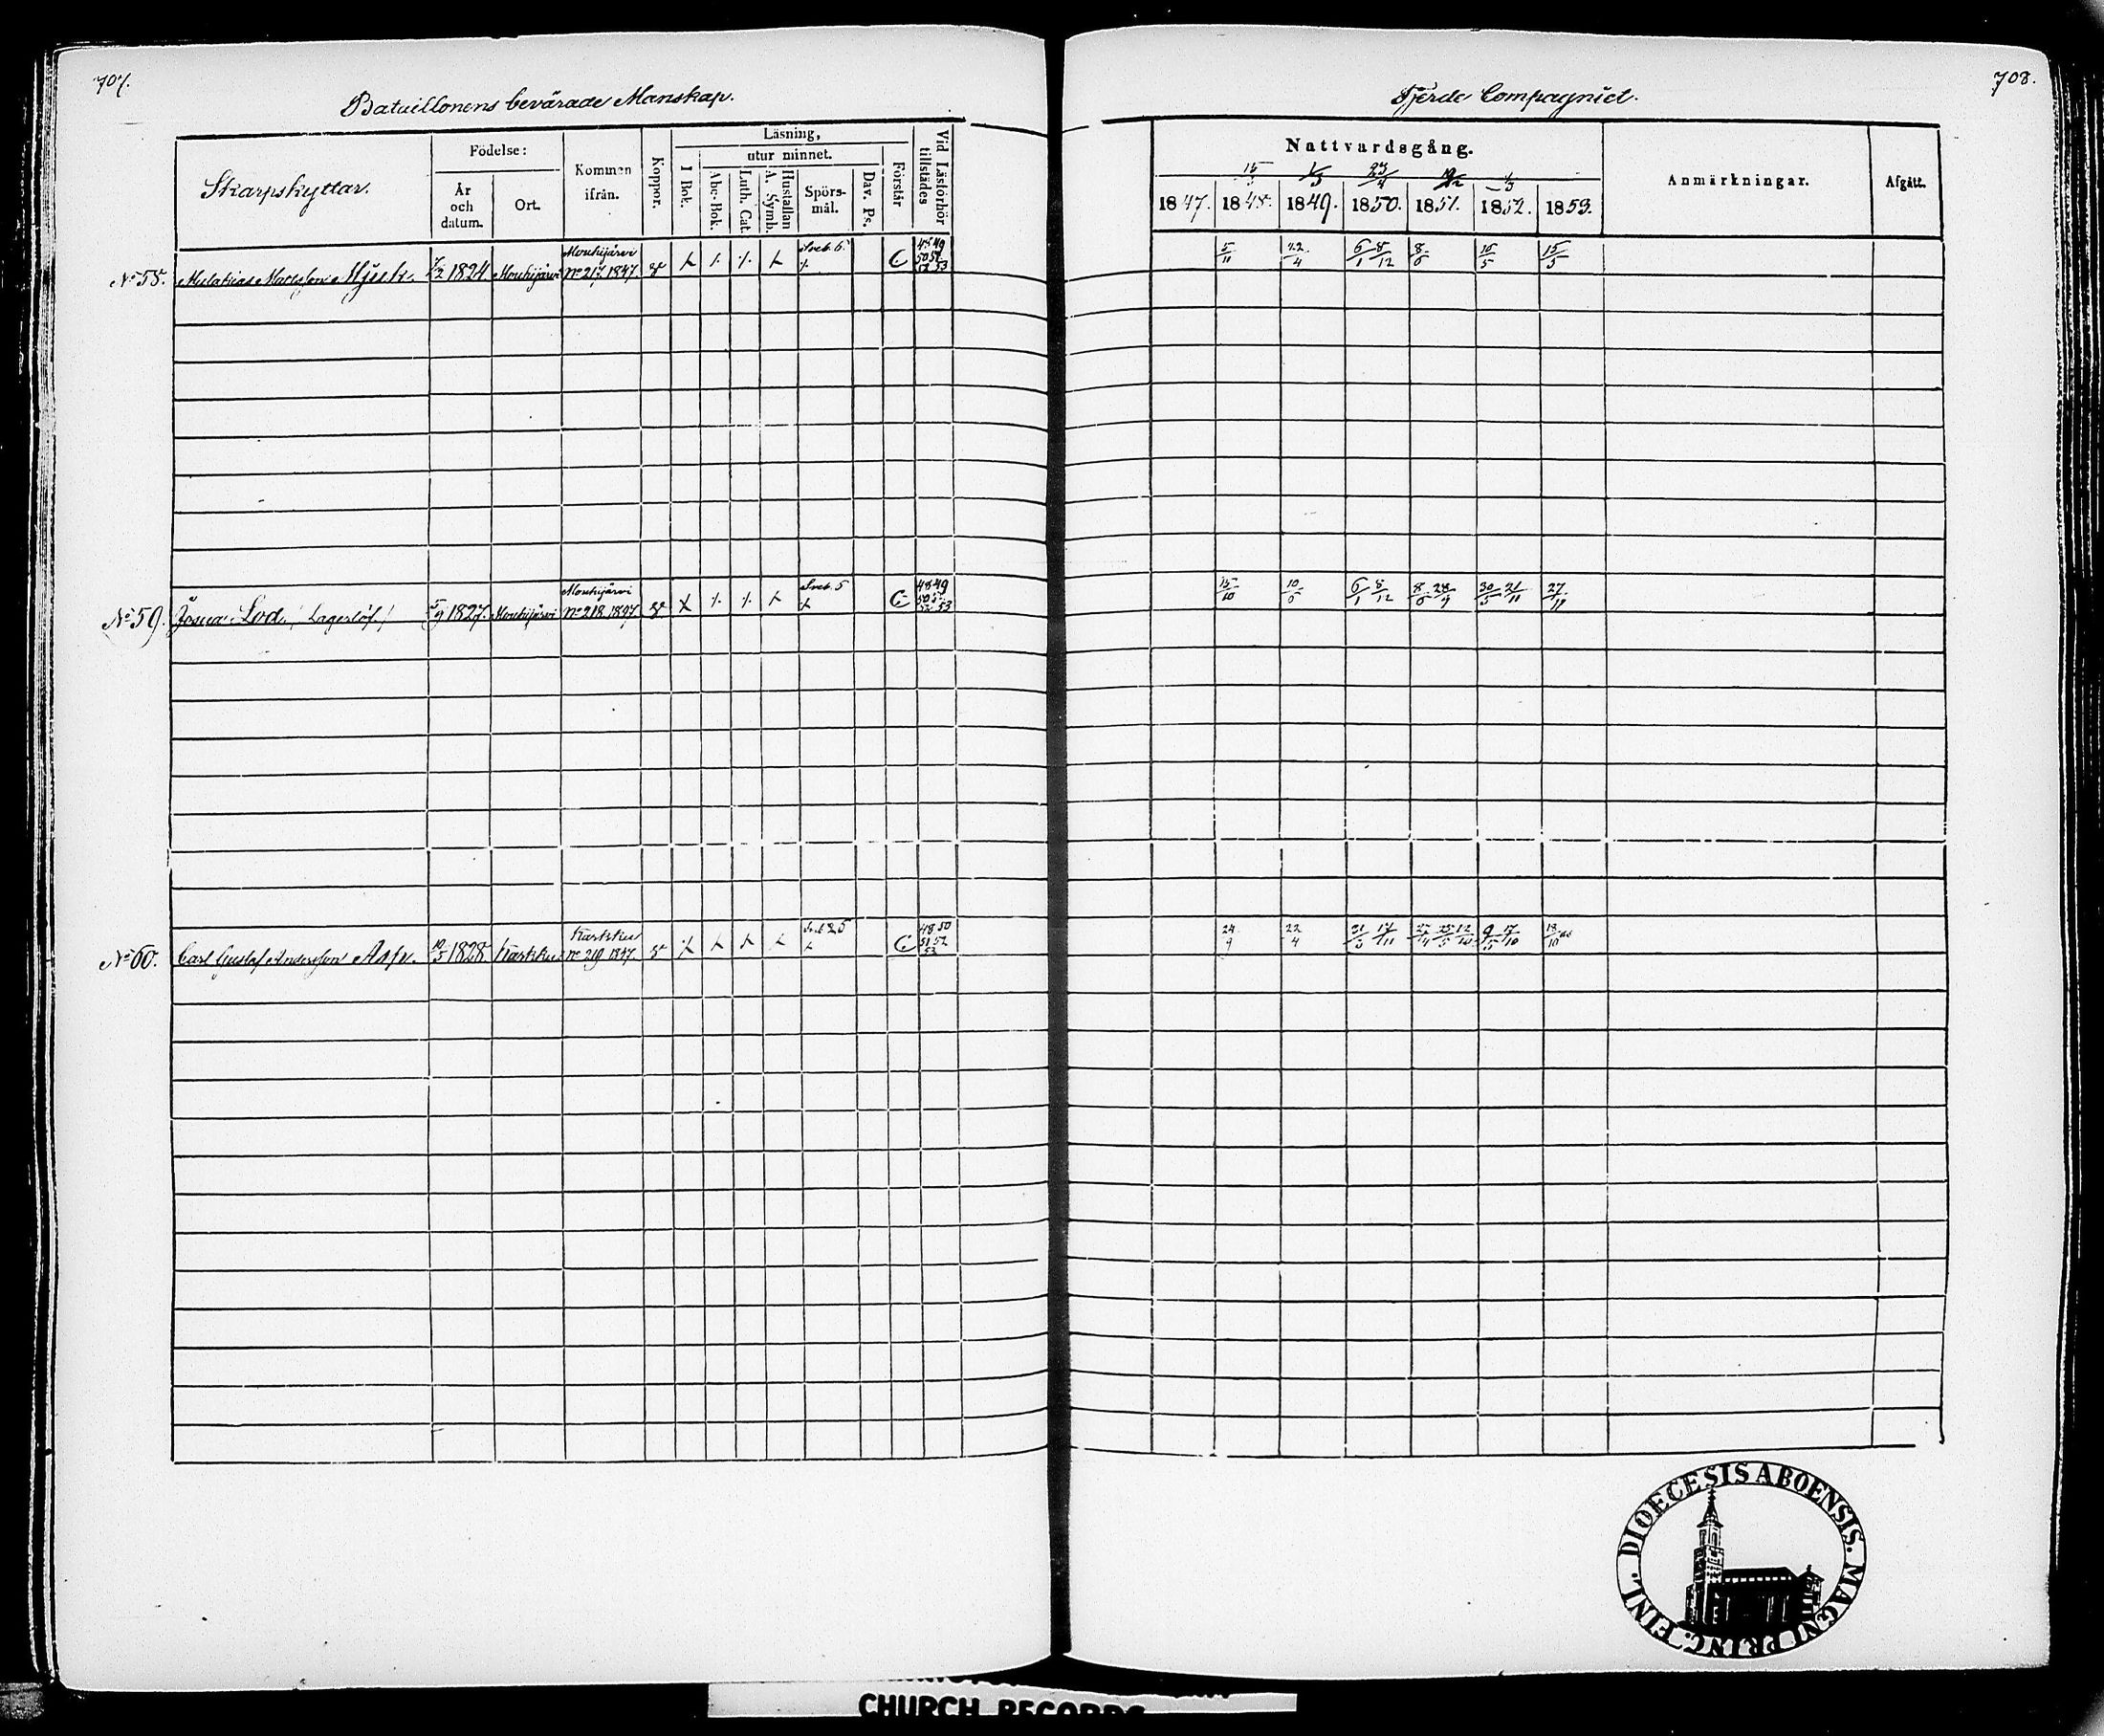 707.
Bataillonens bevärade Manskap.
Skarpskyttar.
Födelse:
År och datum.
Ort.
Kommen ifrån.
Koppor.
Läsning,
I Bok.
utur minnet.
Abc-Bok.
Luth. Cat.
Hustaflan A. Symb.
Spörs-mål.
Dav. Ps.
Förstår
Vid Läsförhör tillstädes
No 58. Mattsson 7/2 1824 Mouhijärvi Mouhijärvi No 217. 1847. Sveb. 6. 48 49 50 51 52 53
No 59. Josua Lod. (Lagerlöf) 5/9 1827. Mouhijärvi Mouhijärvi No 218. 1847. Sveb. 5 48 49 50 51 52 53
No 60. Carl Gustaf Andersson Asp. 10/5 1828 Karkku Karkku No 219 1847. 48 50 51 52 53
708.
Fjerde Compagniet.
Nattvardsgång.
1847. 1848. 1849. 1850. 1851. 1852. 1853.
Anmärkningar.
Afgått.
5/11 22/4 6/1 8/12 8/6 16/5 15/5
15/10 10/6 6/1 8/12 8/6 28/9 30/5 21/11 27/11
24/9 22/4 21/3 17/11 27/4 25/5 12/10 9/5 17/10
DIOECESIS ABOENSIS. MAGNI PRINC. FINL.
CHURCH RECORDS